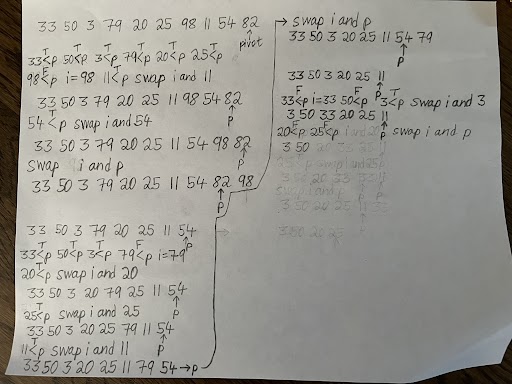 33 50 3 79 20 25 98 11 54 82
↑
pivot
T T T T T T
33<p 50<p 3<p 79<p 20<p 25<p
F T
98<p i=98 11<p swap i and 11
33 50 3 79 20 25 11 98 54 82
T ↑
54<p swap i and 54 p
33 50 3 79 20 25 11 54 98 82
↑
swap i and p p
33 50 3 79 20 25 11 54 82 98
↑
p
33 50 3 79 20 25 11 54
T T T F ↑p
33<p 50<p 3<p 79<p i=79
T
20<p swap i and 20
33 50 3 20 79 25 11 54
T ↑
25<p swap i and 25 p
33 50 3 20 25 79 11 54
T ↑
11<p swap i and 11 p
33 50 3 20 25 11 79 54→p
→ swap i and p
33 50 3 20 25 11 54 79
↑
p
33 50 3 20 25 11
F F T ↑ p
33<p i=33 50<p 3<p swap i and 3
3 50 33 20 25 11
F F ↑
20<p 25<p p swap i and p
3 50